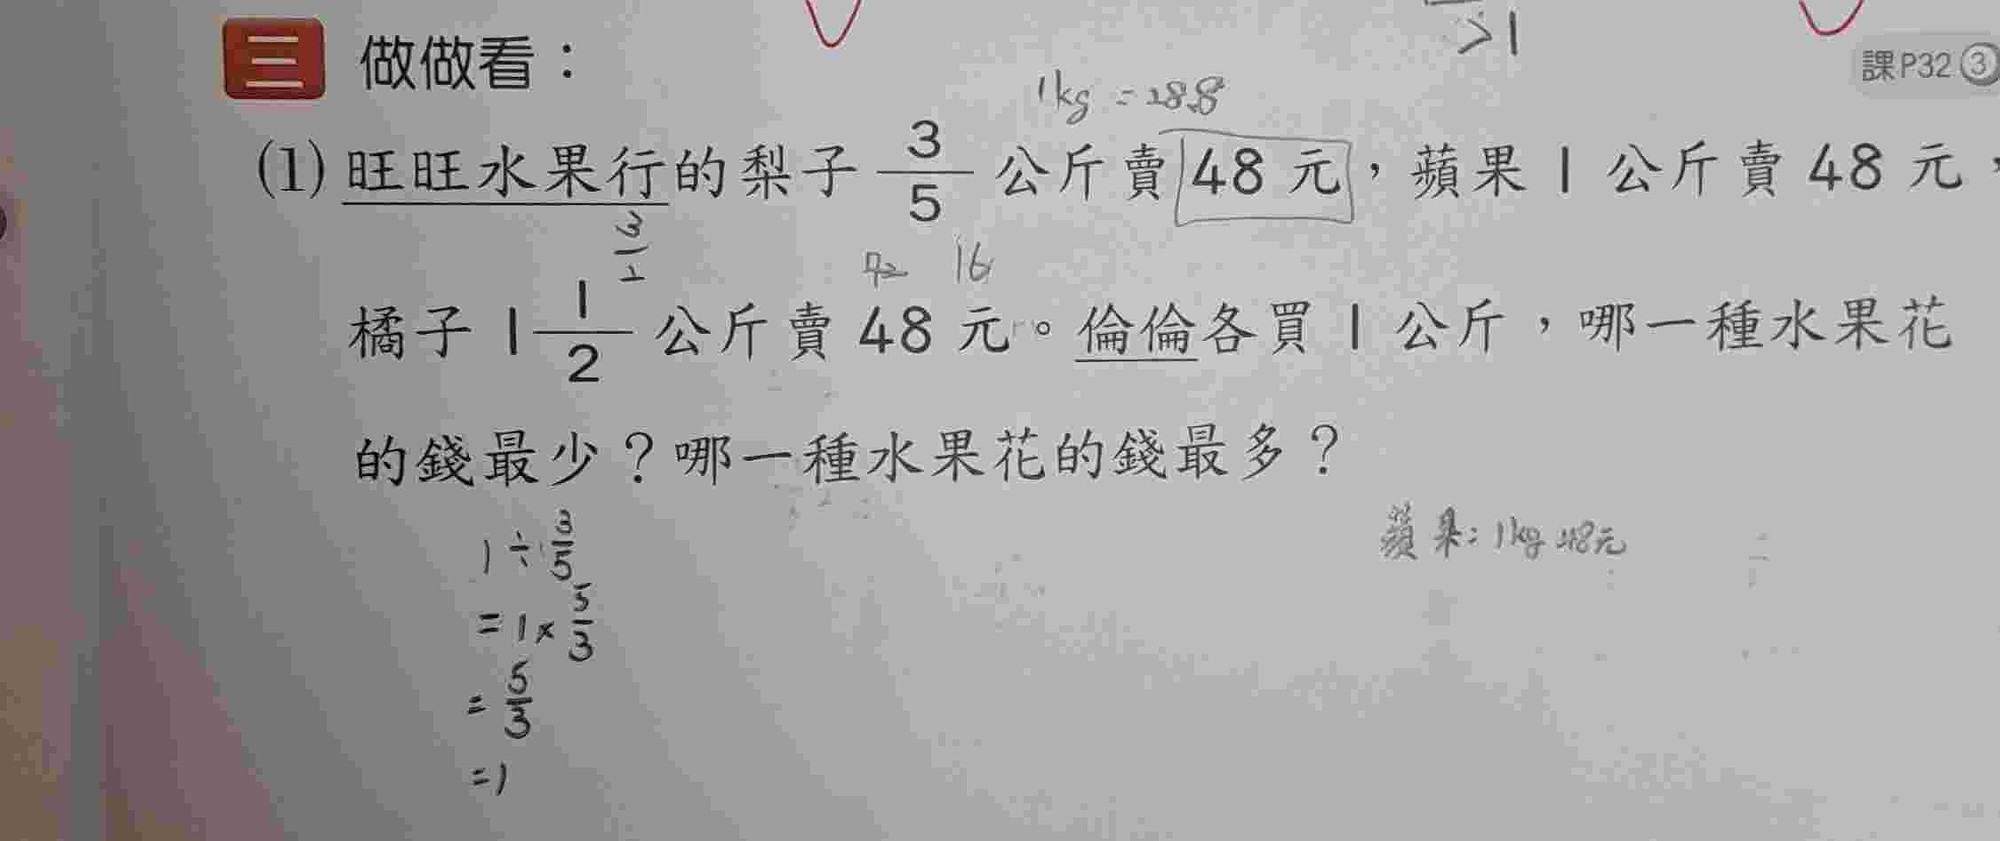 >1
三 做做看：
課P32③
1kg = 28.8
(1) 旺旺水果行的梨子 3/5 公斤賣 48 元，蘋果 1 公斤賣 48 元，
3/2
72 16
橘子 1 1/2 公斤賣 48 元。倫倫各買 1 公斤，哪一種水果花
的錢最少？哪一種水果花的錢最多？
蘋果：1kg 48元
1 ÷ 3/5
= 1 × 5/3
= 5/3
= 1